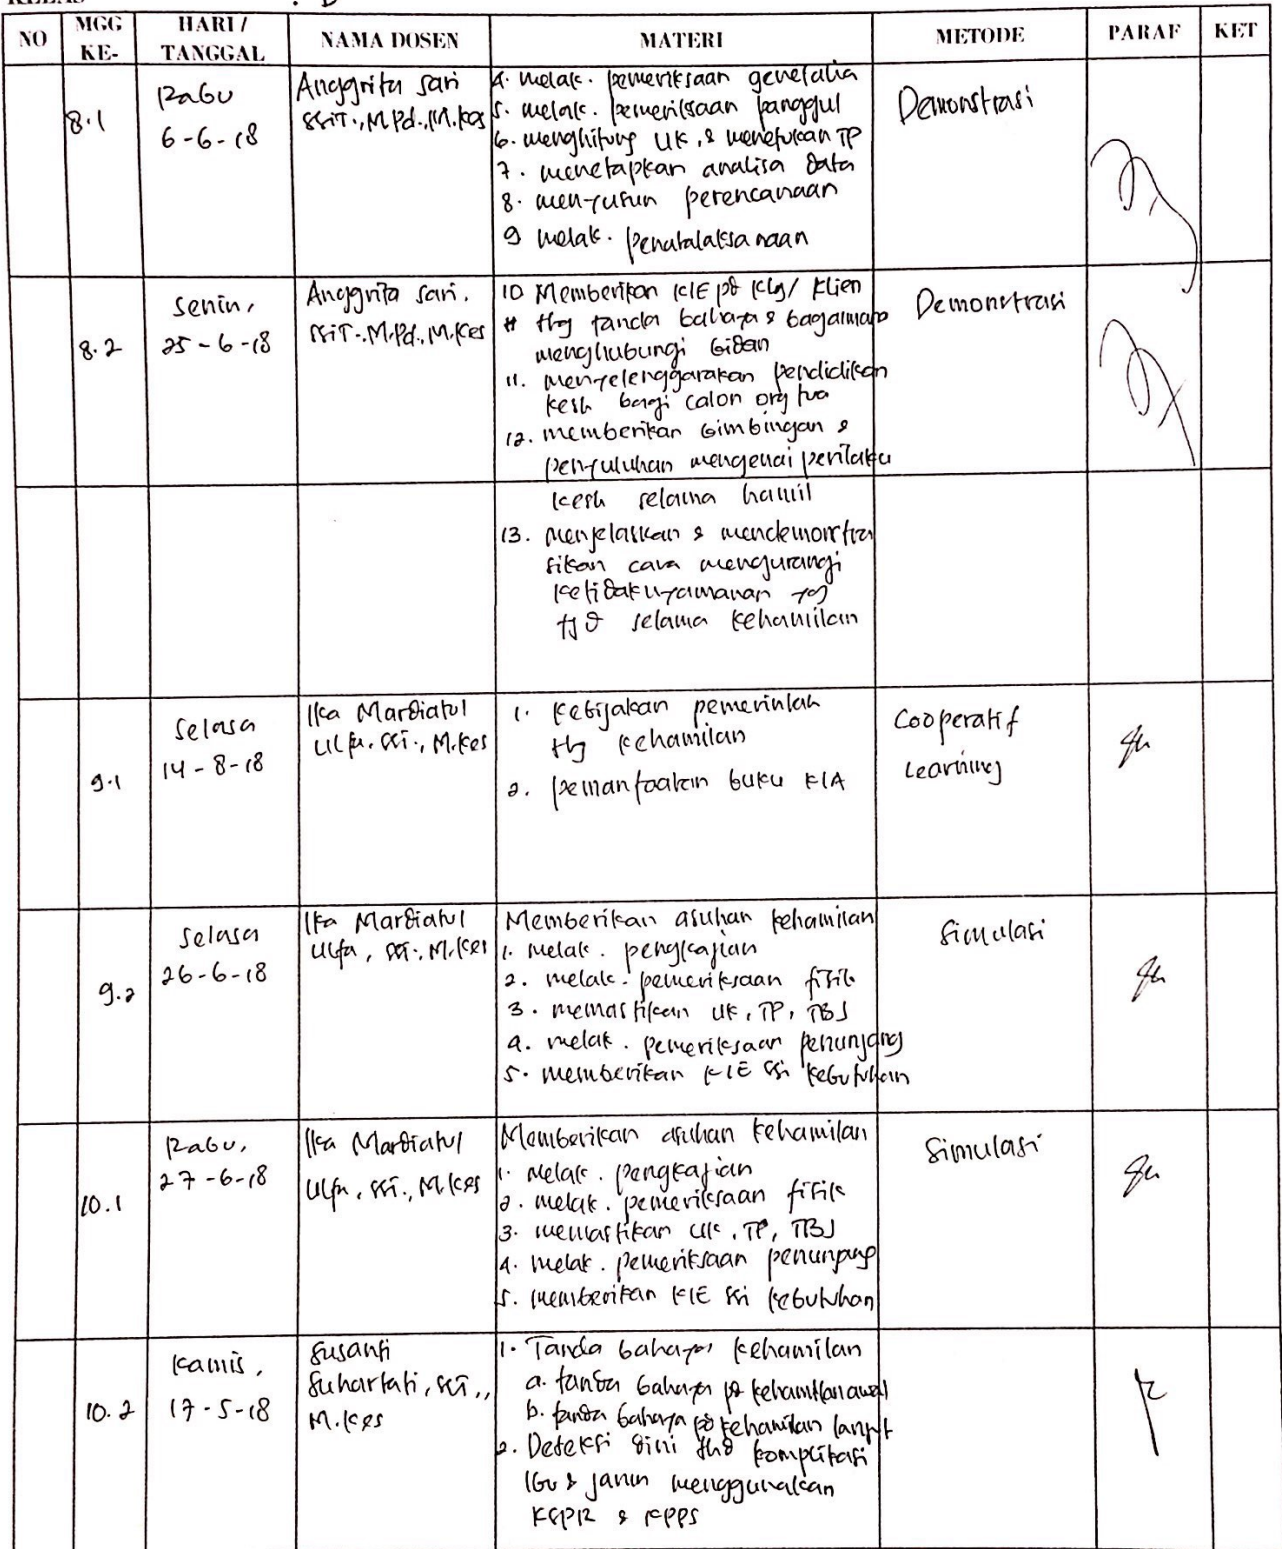 KELAS : B
NO MGG KE- HARI / TANGGAL NAMA DOSEN MATERI METODE PARAF KET
8.1
Rabu
6-6-18
Anggrita Sari
SSiT., M.Pd., M.Kes
4. melak. pemeriksaan genetalia
5. melak. pemeriksaan panggul
6. menghitung UK, & menentukan TP
7. menetapkan analisa data
8. menyusun perencanaan
9 melak. penatalaksanaan
Demonstrasi
8.2
Senin,
25-6-18
Anggrita Sari,
SSiT., M.Pd., M.Kes
10 Memberikan KIE pd Klg/ Klien
ttg tanda bahaya & bagaimana
menghubungi bidan
11. menyelenggarakan pendidikan
kesh bagi calon org tua
12. memberikan bimbingan &
penyuluhan mengenai perilaku
kesh selama hamil
13. menjelaskan & mendemonstra
sikan cara mengurangi
ketidaknyamanan yg
tjd selama kehamilan
Demonstrasi
9.1
Selasa
14-8-18
Ika Mardiatul
Ulfa, SSi., M.Kes
1. Kebijakan pemerintah
ttg kehamilan
2. pemanfaatan buku KIA
Cooperatif
Learning
9.2
Selasa
26-6-18
Ika Mardiatul
Ulfa, SSi., M.Kes
Memberikan asuhan kehamilan
1. melak. pengkajian
2. melak. pemeriksaan fisik
3. memastikan UK, TP, TBJ
4. melak. pemeriksaan penunjang
5. memberikan KIE ssi kebutuhan
Simulasi
10.1
Rabu,
27-6-18
Ika Mardiatul
Ulfa, SSi., M.Kes
Memberikan asuhan kehamilan
1. melak. pengkajian
2. melak. pemeriksaan fisik
3. memastikan UK, TP, TBJ
4. melak. pemeriksaan penunjang
5. memberikan KIE ssi kebutuhan
Simulasi
10.2
Kamis,
17-5-18
Susanti
Suhartati, SSi.,
M.Kes
1. Tanda bahaya kehamilan
a. tanda bahaya pd kehamilan awal
b. tanda bahaya pd kehamilan lanjut
2. Deteksi dini thd komplikasi
Ibu & janin menggunakan
KSPR &